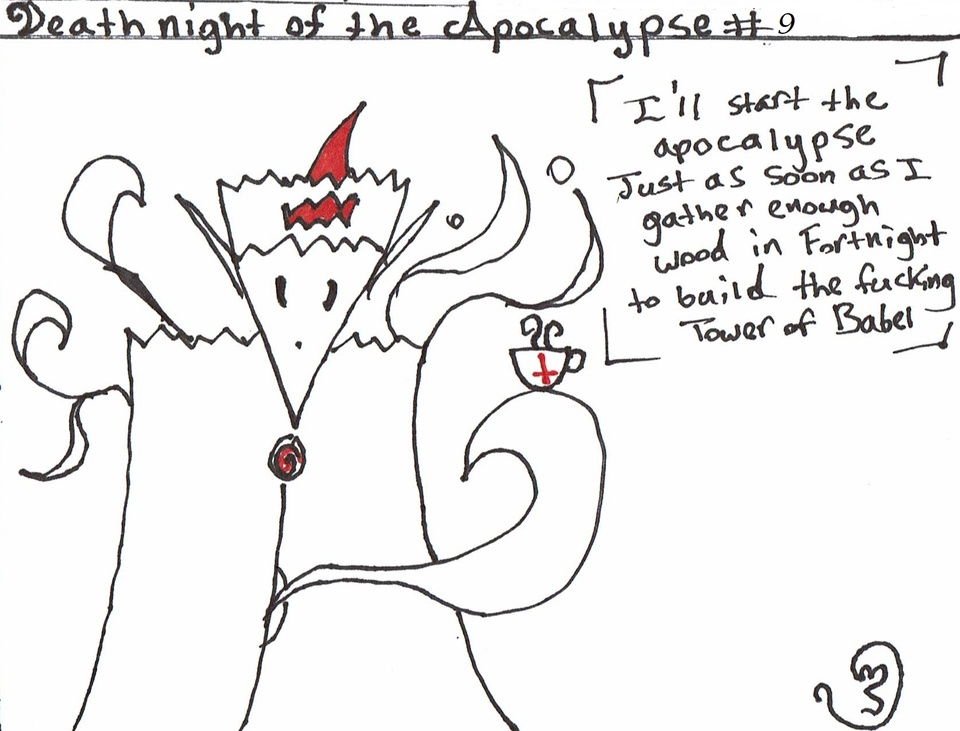 Deathnight of the Apocalypse # 9
I'll start the
apocalypse
Just as soon as I
gather enough
wood in Fortnight
to build the fucking
Tower of Babel